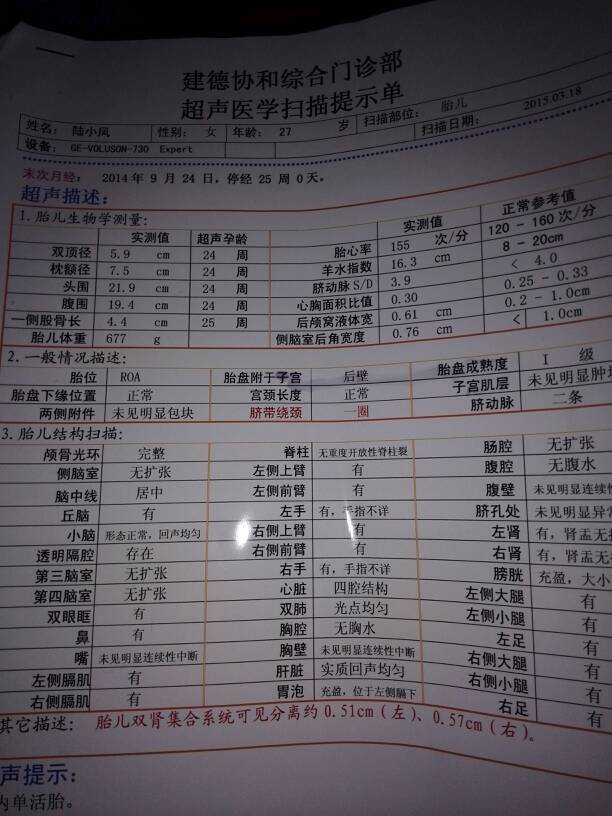 建德协和综合门诊部
超声医学扫描提示单
姓名： 陆小凤 性别： 女 年龄： 27 岁 扫描部位： 胎儿
设备： GE-VOLUSON-730 Expert 扫描日期： 2015.03.18
末次月经： 2014 年 9 月 24 日，停经 25 周 0 天。
超声描述：
1. 胎儿生物学测量：
实测值 超声孕龄 实测值 正常参考值
双顶径 5.9 cm 24 周 胎心率 155 次/分 120 - 160 次/分
枕额径 7.5 cm 24 周 羊水指数 16.3 cm 8 - 20cm
头围 21.9 cm 24 周 脐动脉 S/D 3.9 < 4.0
腹围 19.4 cm 24 周 心胸面积比值 0.30 0.25 - 0.33
一侧股骨长 4.4 cm 25 周 后颅窝液体宽 0.61 cm 0.2 - 1.0cm
胎儿体重 677 g 侧脑室后角宽度 0.76 cm < 1.0cm
2. 一般情况描述：
胎位 ROA 胎盘附于子宫 后壁 胎盘成熟度 I 级
胎盘下缘位置 正常 宫颈长度 正常 子宫肌层 未见明显肿
两侧附件 未见明显包块 脐带绕颈 一圈 脐动脉 二条
3. 胎儿结构扫描：
颅骨光环 完整 脊柱 无重度开放性脊柱裂 肠腔 无扩张
侧脑室 无扩张 左侧上臂 有 腹腔 无腹水
脑中线 居中 左侧前臂 有 腹壁 未见明显连续性
丘脑 有 左手 有，手指不详 脐孔处 未见明显异常
小脑 形态正常，回声均匀 右侧上臂 有 左肾 有，肾盂无
透明隔腔 存在 右侧前臂 有 右肾 有，肾盂无
第三脑室 无扩张 右手 有，手指不详 膀胱 充盈，大小
第四脑室 无扩张 心脏 四腔结构 左侧大腿 有
双眼眶 有 双肺 光点均匀 左侧小腿 有
鼻 有 胸腔 无胸水 左足 有
嘴 未见明显连续性中断 胸壁 未见明显连续性中断 右侧大腿 有
左侧膈肌 有 肝脏 实质回声均匀 右侧小腿 有
右侧膈肌 有 胃泡 充盈，位于左侧膈下 右足 有
其它描述： 胎儿双肾集合系统可见分离约 0.51cm（左）、0.57cm（右）。
声提示：
内单活胎。